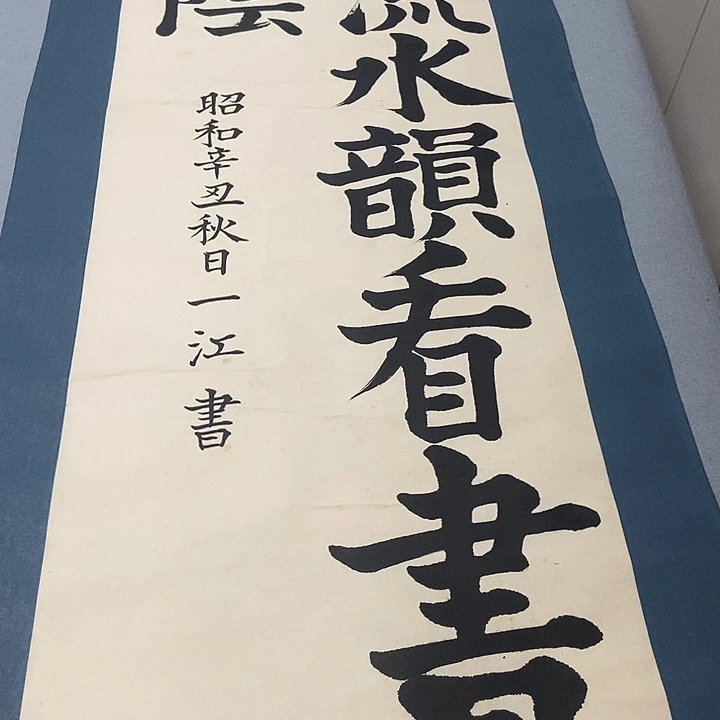 流水韻看書
陰
昭和辛丑秋日一江書